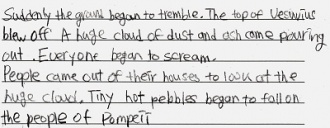 Suddenly the ground began to tremble. The top of Vesuvius
blew off A huge cloud of dust and ash came pouring
out. Everyone began to scream.
People came out of their houses to look at the
huge cloud. Tiny hot pebbles began to fall on
the people of Pompeii